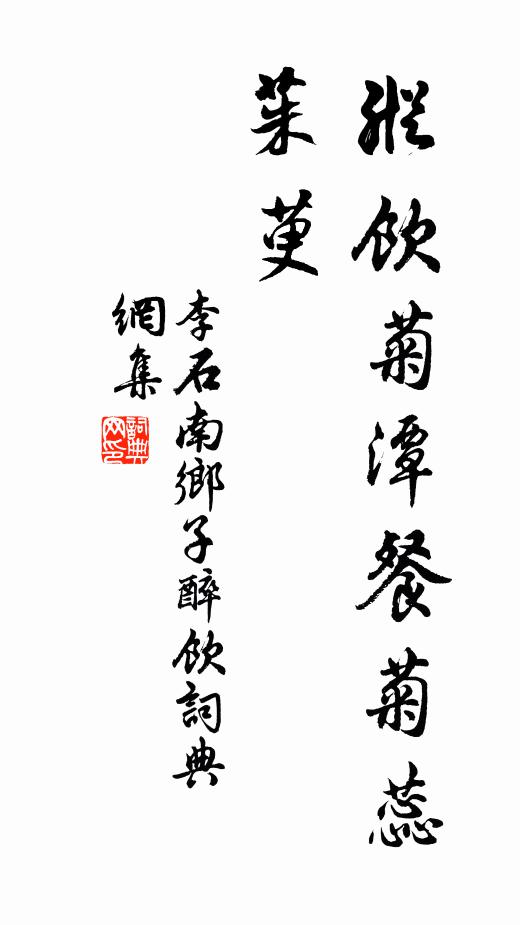 縱飲菊潭餐菊蕊
茱萸
李石南鄉子醉飲詞典
網集
詞典
网印